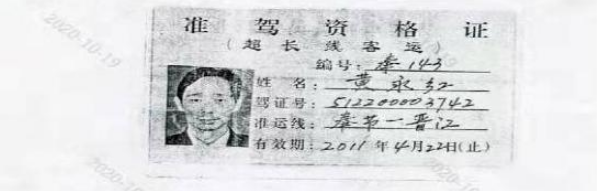 准驾资格证
(超长线客运)
编号:奉143
姓 名:黄永红
驾证号:512200003742
准运线:奉节一晋江
有效期:2011年4月22日(止)
2020-10-19